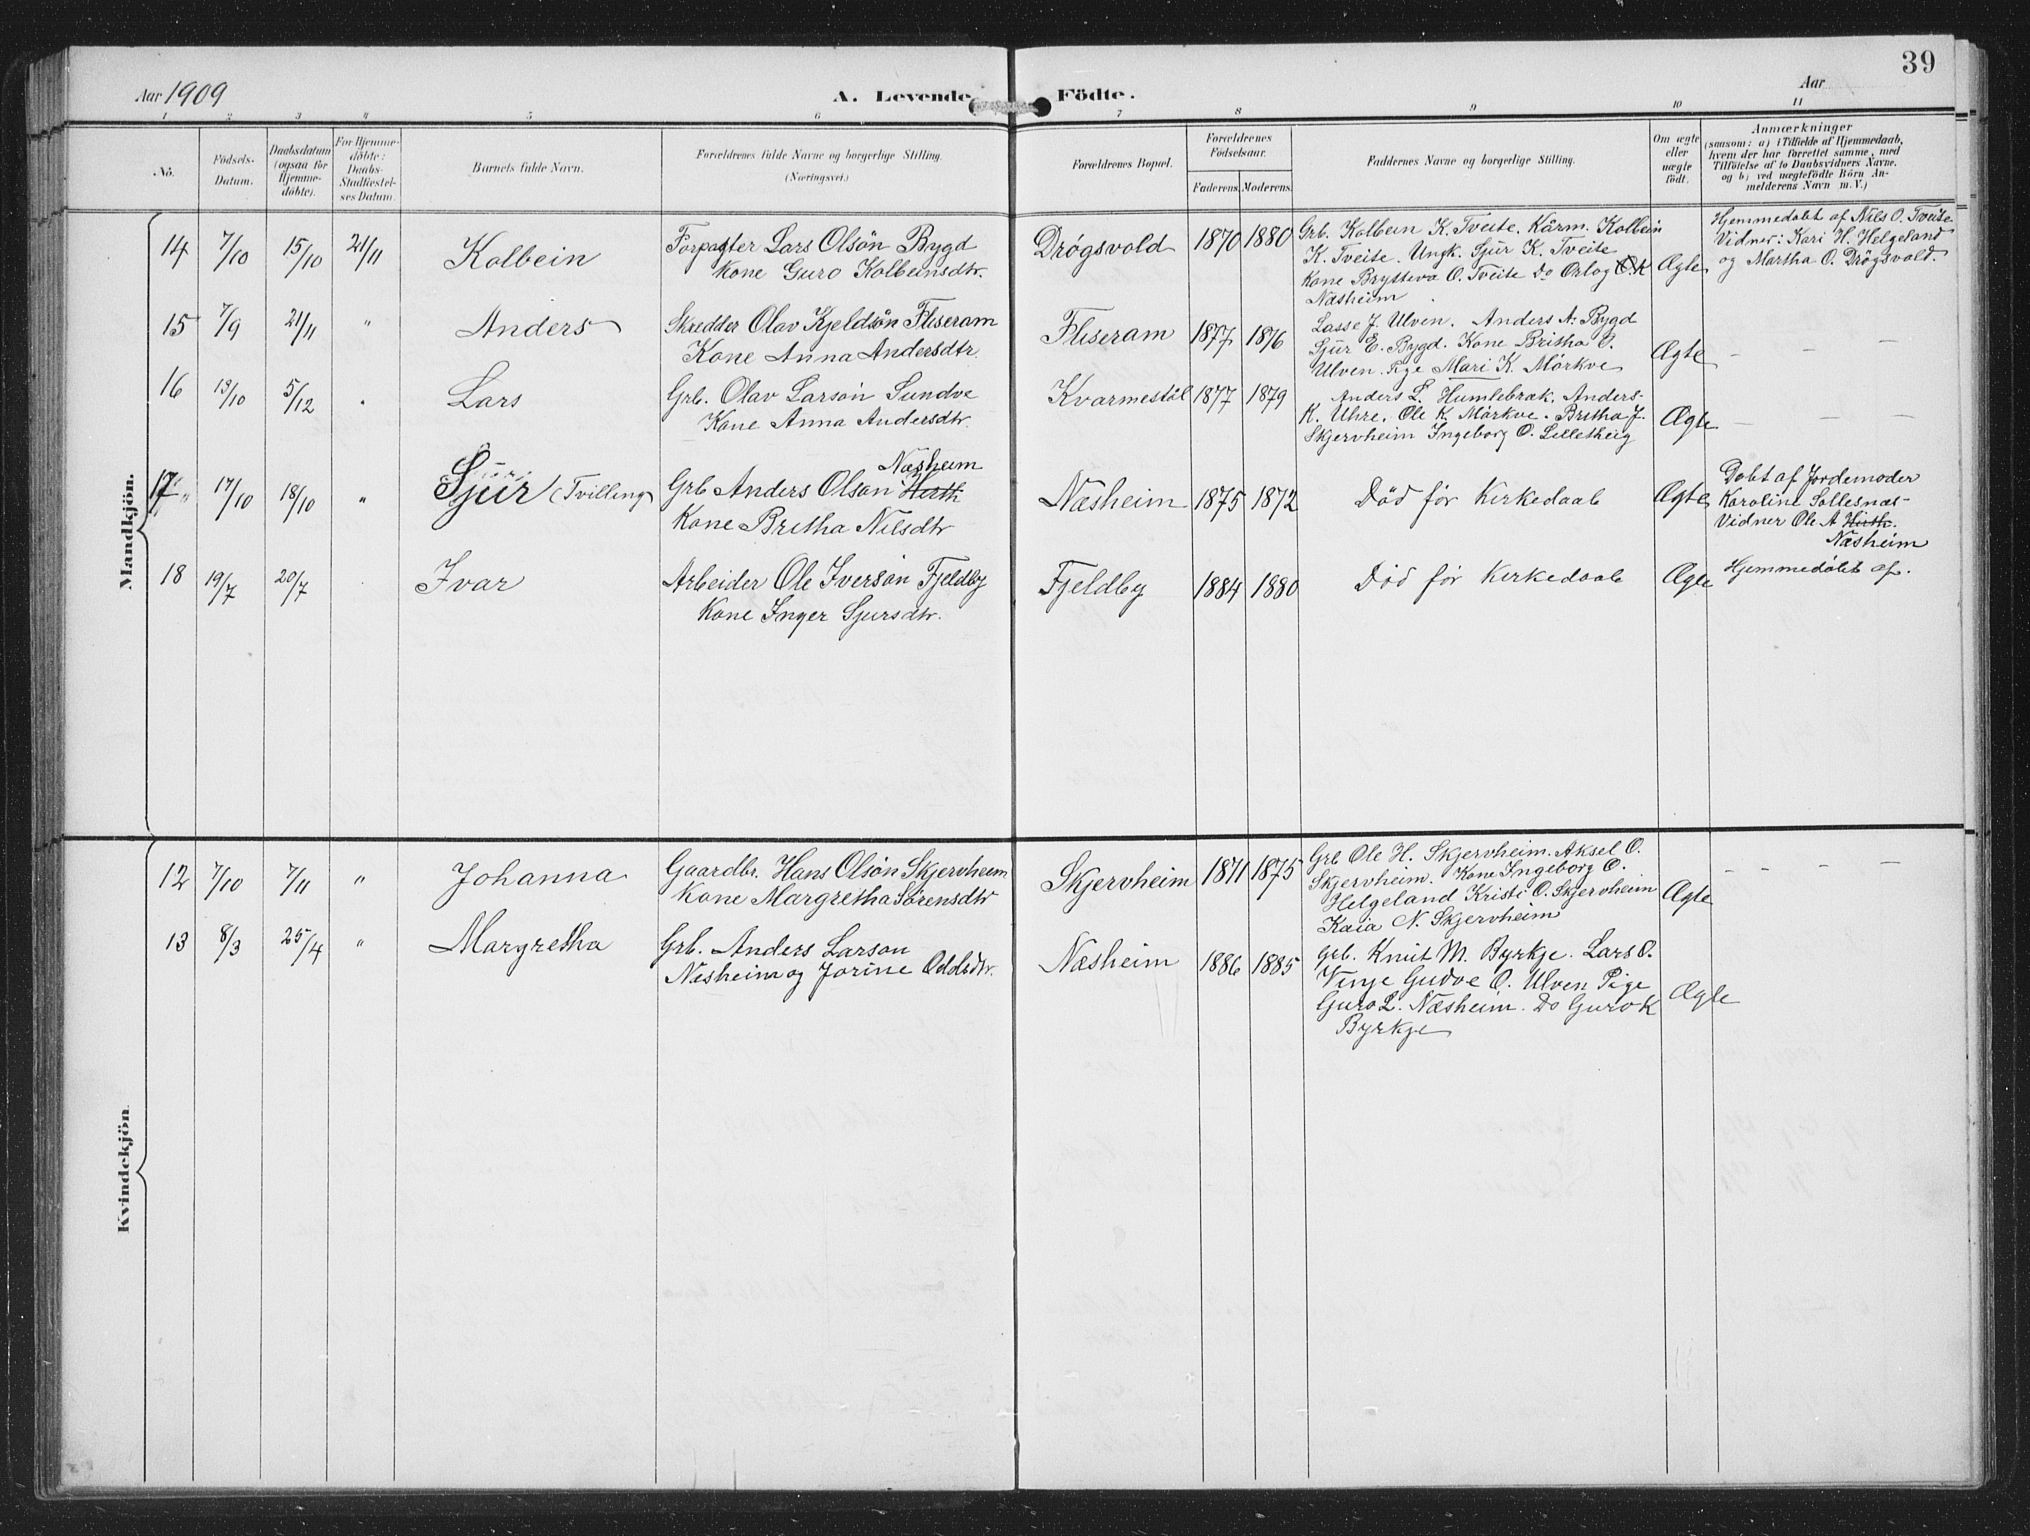 39
Aar 1909
A. Levende
Födte.
Aar
1 2 3 4 5 6 7 8 9 10 11
No.
Födsels-
Datum.
Daabsdatum
(ogsaa for
Hjemme-
döbte).
For Hjemme-
döbte:
Daabs-
Stadfæstel-
ses Datum.
Barnets fulde Navn.
Forældrenes fulde Navne og borgerlige Stilling.
(Næringsvei.)
Forældrenes Bopæl.
Forældrenes
Födselsaar.
Faderens. Moderens.
Faddernes Navne og borgerlige Stilling.
Om ægte
eller
uægte
födt.
Anmærkninger
(saasom: a) i Tilfælde af Hjemmedaab,
hvem der har forrettet samme, med
Tilföielse af to Daabsvidners Navne.
og b) ved uægtefödte Börn An-
melderens Navn m. V.)
Mandkjön.
14 7/10 15/10 21/11 Kolbein
Forpagter Lars Olsön Bygd
Kone Guro Kolbeinsdtr.
Drögsvold 1870 1880
Grb. Kolbein K. Tveite. Kårm. Kolbein
K. Tveite. Ungk. Sjur K. Tveite
Kone Brytteva O. Tveite Do Ortog O K
Næsheim
Ægte
Hjemmedöbt af Nils O. Tveite
Vidner: Kari H. Helgeland
og Martha O. Drögsvold.
15 7/9 21/11 " Anders
Skredder Olav Kjeldsön Fliseram
Kone Anna Andersdtr.
Fliseram 1877 1876
Lasse J. Ulven. Anders A. Bygd
Sjur E. Bygd. Kone Britha O.
Ulven. Pige Mari K. Mörkve
Ægte – – –
16 13/10 5/12 " Lars
Grb. Olav Larsön Sundve
Kone Anna Andersdtr.
Kvarmestöl 1877 1879
Anders L. Humlebræk. Anders
K. Uhre. Ole K. Mörkve. Britha J.
Skjervheim Ingeborg O. Lilletheig
Ægte – – –
17 17/10 18/10 " Sjur (Tvilling)
Næsheim
Grb Anders Olsön Hirth
Kone Britha Nilsdtr
Næsheim 1875 1872
Död för Kirkedaab
Ægte
Döbt af Jordemoder
Karoline Sollesnæs-
Vidner Ole A Hirth.
Næsheim
18 19/7 20/7 Ivar
Arbeider Ole Iversön Fjeldby
Kone Inger Sjursdtr.
Fjeldby 1884 1880
Död för Kirkedaab
Ægte
Hjemmedöbt af.
Kvindekjön.
12 7/10 7/11 " Johanna
Gaardbr. Hans Olsön Skjervheim
Kone Margretha Sörensdtr
Skjervheim 1871 1875
Grb Ole H. Skjervheim. Aksel O.
Skjervheim. Kone Ingeborg O.
Helgeland Kristi O. Skjervheim
Kaia N. Skjervheim
Ægte – – –
13 8/3 25/4 " Margretha
Grb. Anders Larson
Næsheim og Jorine Oddsdtr.
Næsheim 1886 1885
Grb. Knut M. Byrkje. Lars O.
Vinje Gudve O. Ulven Pige
Guro L. Næsheim. Do Guro K
Byrkje
Ægte